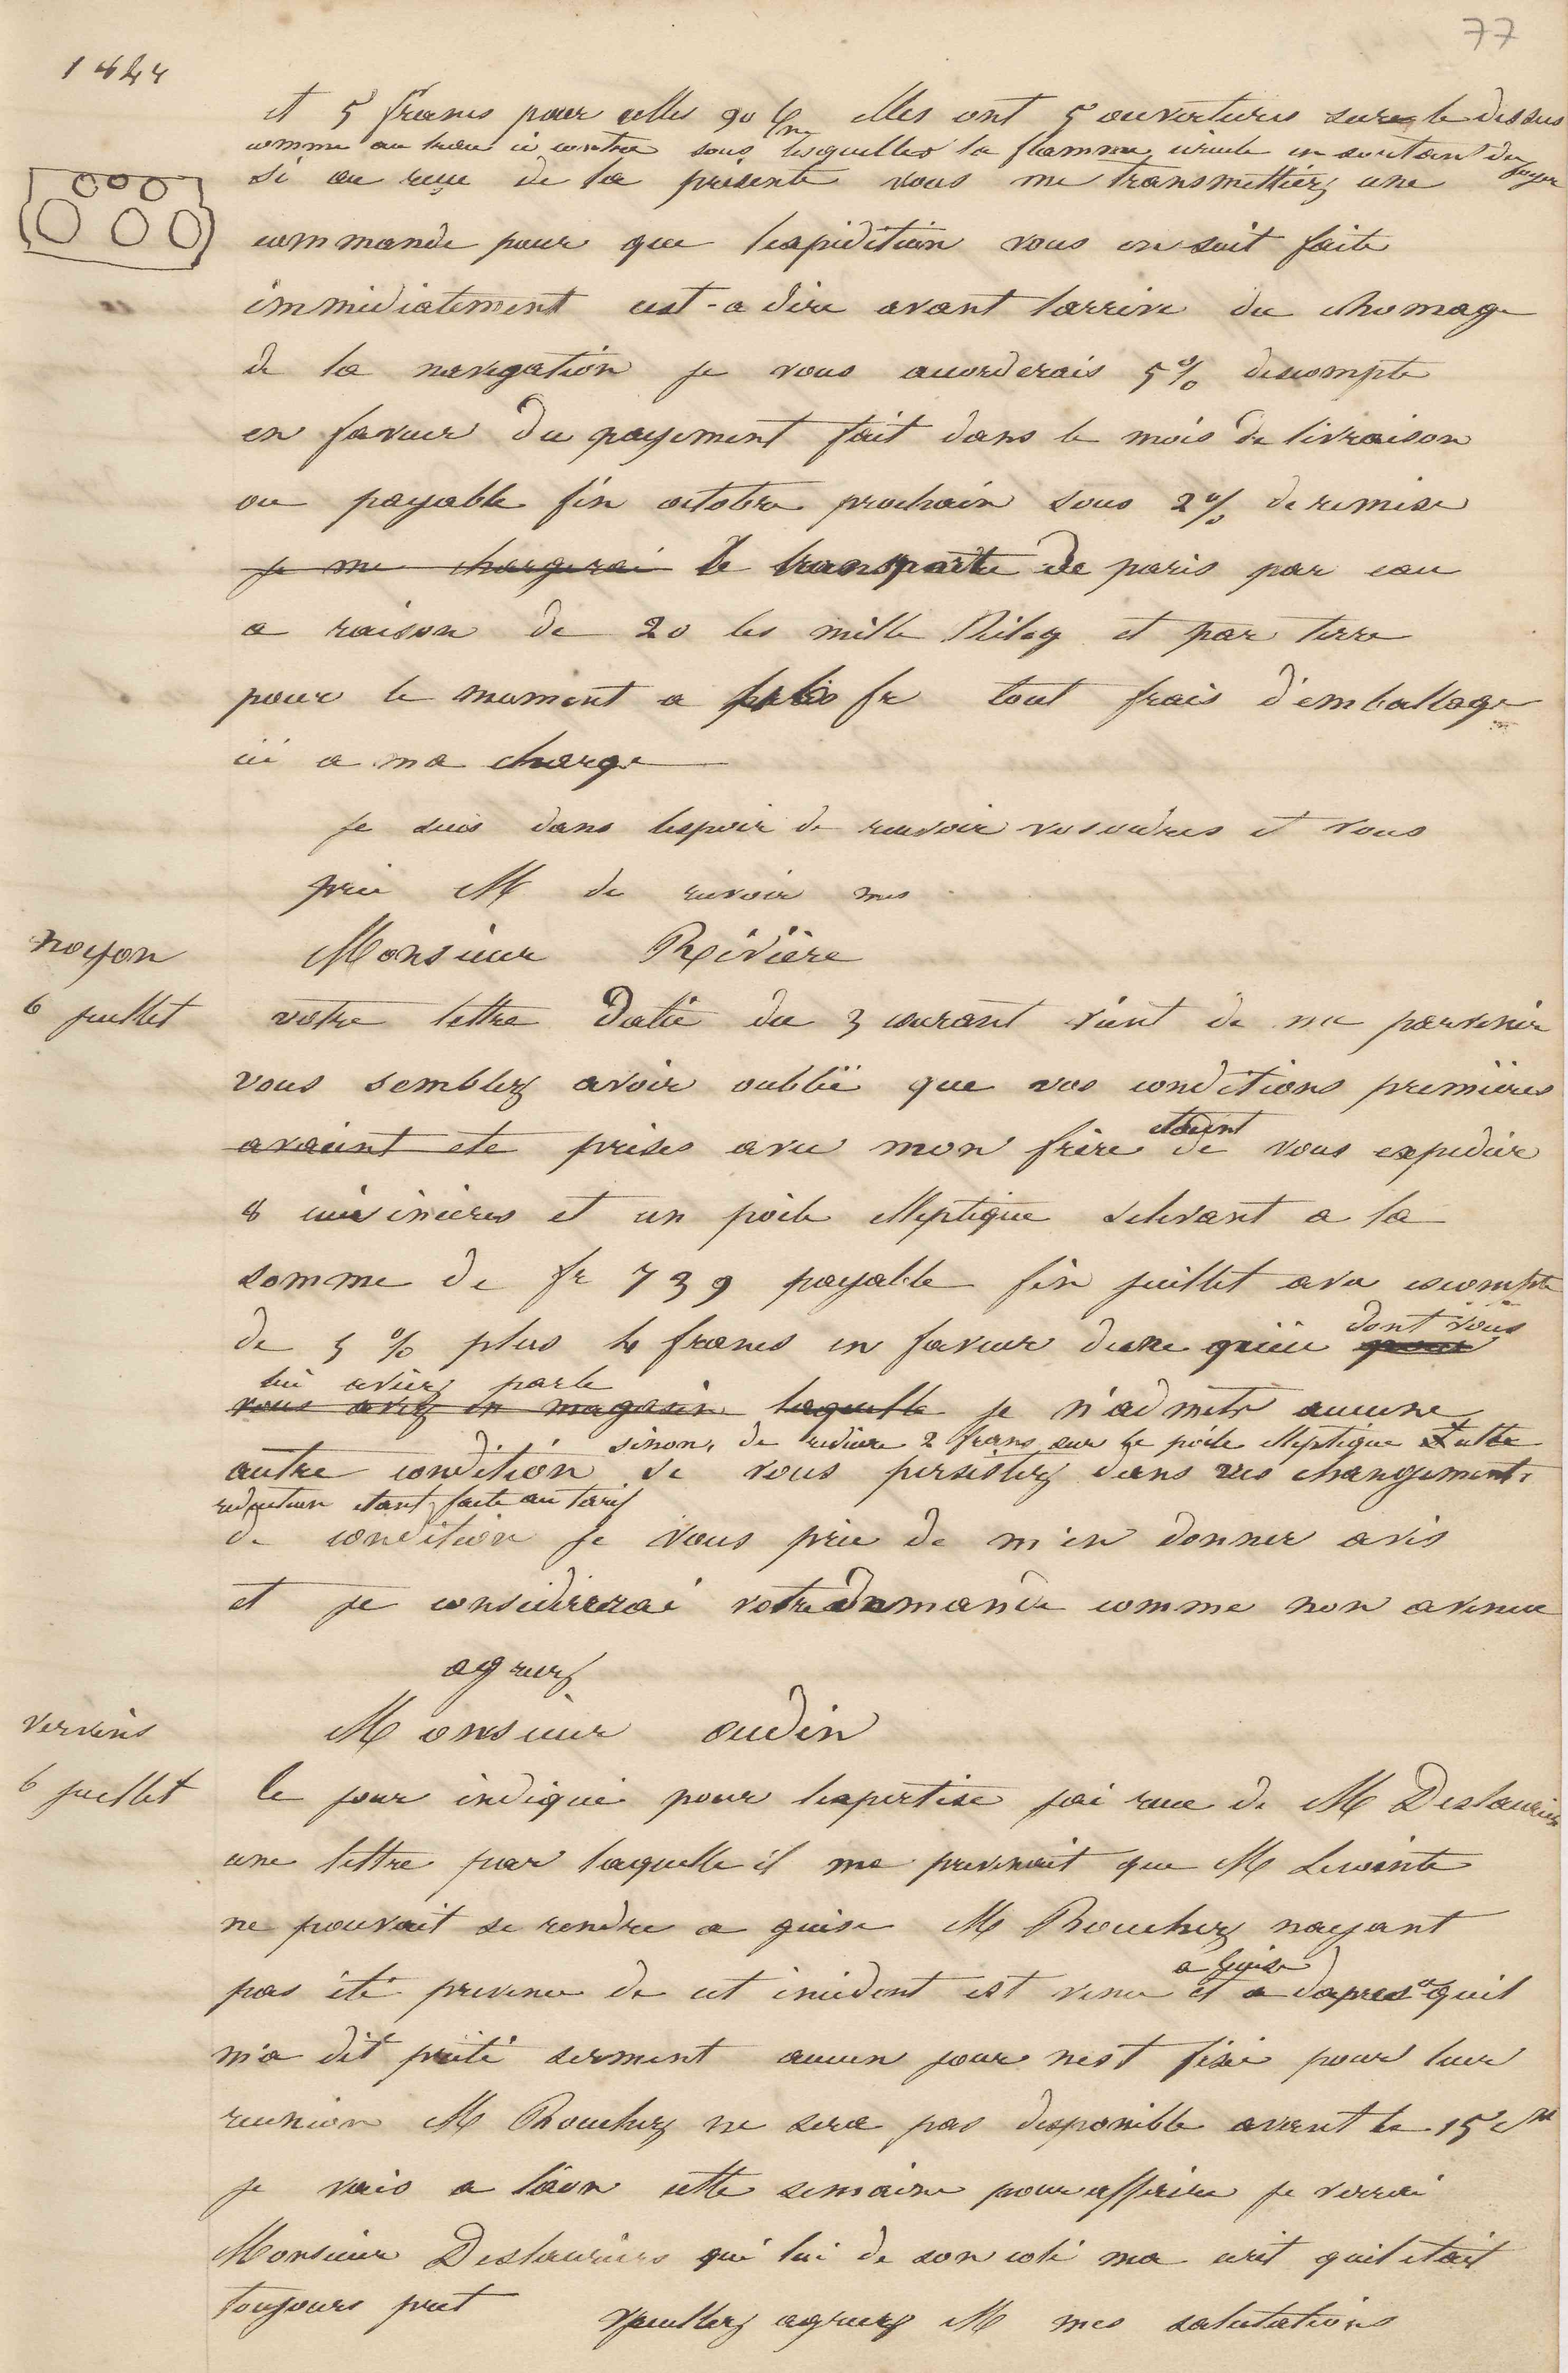 77
1844
et 5 francs pour celles 90 elles ont 5 ouvertures sur le dessus
comme au trou ci contre sous lesquelles la flamme circule en sortant du foyer
si au reçu de la presente vous me transmettiez une
commande pour que lexpidition vous en soit faite
immediatement cest-a dire avant larrive du chomage
de la navigation je vous accorderais 5% descompte
en faveur du payement fait dans le mois de livraison
ou payable fin octobre prochain sous 2% de remise
je me chargerai le transporte de paris par eau
a raison de 20 les mille Kilog et par terre
pour le moment a fr tout frais d'emballage
ici a ma charge
je suis dans lespoir de recevoir vos ordres et vous
prie M de recevoir mes
noyon
Monsieur Rivière
6 juillet
votre lettre datée du 3 courant vient de me parvenir
vous semblez avoir oublié que vos conditions premières
etaient
avaient ete prises avec mon frère de vous expedier
8 cuisinières et un poële elleptique selevant a la
somme de fr 739 payable fin juillet avec escompte
de 5 % plus 4 francs en faveur dune pièce dont vous
lui aviez parle
vous avez en magasin laquelle je n'admets aucune
sinon de reduire 2 francs sur le poële elleptique cette
autre condition si vous persistez dans vos changements
reduction etant faite au tarif
de condition je vous prie de m'en donner avis
et je considererai votre demande comme non avenue
agreez
vervins
Monsieur oudin
6 juillet
le jour indiqué pour lexpertise jai recu de M Deslauriers
une lettre par laquelle il me prevenait que M Lecointe
ne pouvait se rendre a guise M Rouchez nayant
a guise
pas été prevenu de cet incident est venu et a dapres ce quil
m'a dit prêté serment aucun jour nest fixé pour leur
reunion M Rouchez ne sera pas disponible avant le 15 ct
je vais a laon cette semaine pour affaire je verrai
Monsieur Deslauriers qui lui de son coté ma ecrit quil etait
toujours pret
veuillez agreez M mes salutations